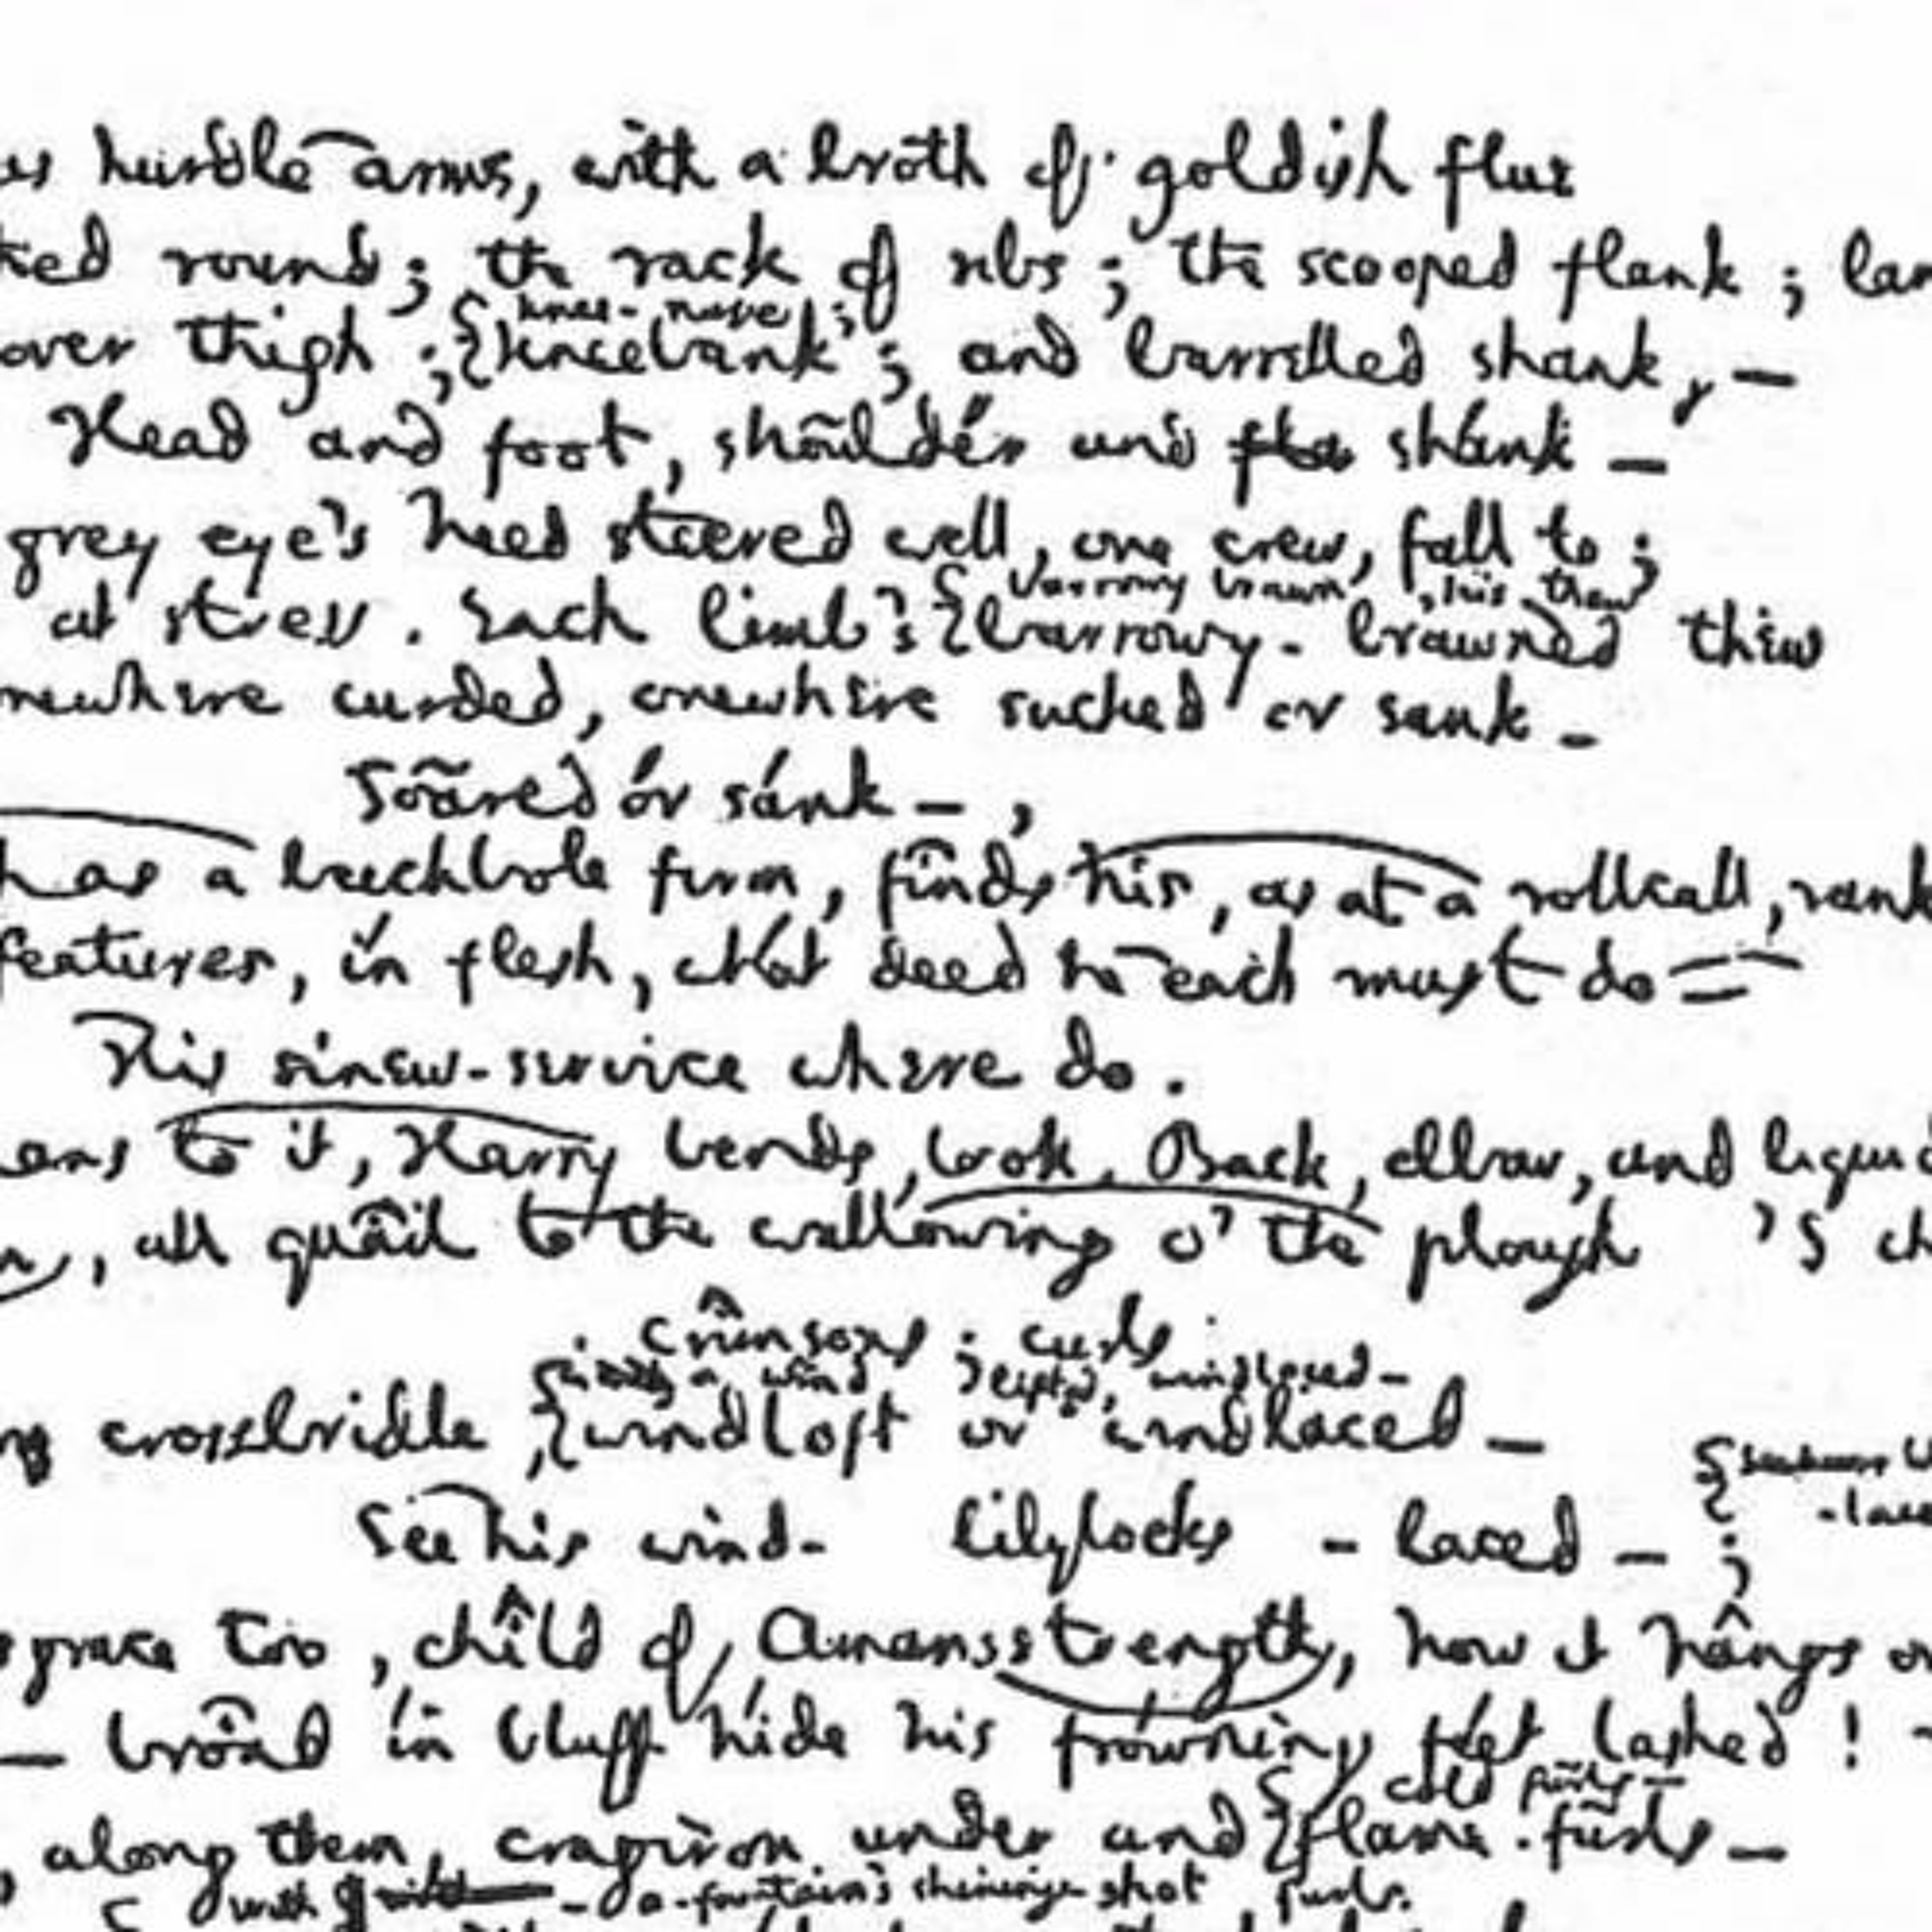 hurdle arms, with a broth of goldish flue
round; the rack of ribs; the scooped flank; lan
knee-nave;
over thigh; kneebank; and barrelled shank, —
Head and foot, shouldér and shánk —
grey eye's heed steered well, one crew, fall to;
barrowy brawn, his thew
at stress. Each limb's barrowy-brawned thew
curded, onewhere sucked or sank —
Soared ór sánk —,
as a beechbole firm, finds his, as at a rollcall, rank
features, in flesh, what deed he each must do =
His sinew-service where do.
eans to it, Harry bends, look. Back, elbow, and liquid
, all quâil to the wallowing o' the plough 'S ch
crîmsons; curls
wind windlaced —
crossbridle, windloft or windlaced —
-lace
See his wind- lilylocks -laced —;
grace too, chîld of Amansstrength, how it hângs or
— brôad in bluff híde his frówning féet lashed! —
cold furls —
, along them, cragiron under and flame-furls —
with a-fountain's shining-shot furls.